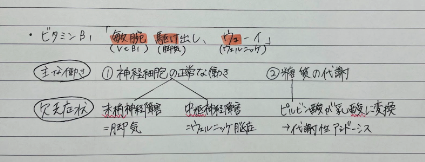 ・ビタミンB₁「敏腕 駆け出し、ウェーイ」
(VB1) (脚気) (ウェルニッケ)
主な働き ①神経細胞の正常な働き ②糖質の代謝
欠乏症状 末梢神経障害 中枢神経障害 ピルビン酸が乳酸に変換
=脚気 =ウェルニッケ脳症 →代謝性アシドーシス